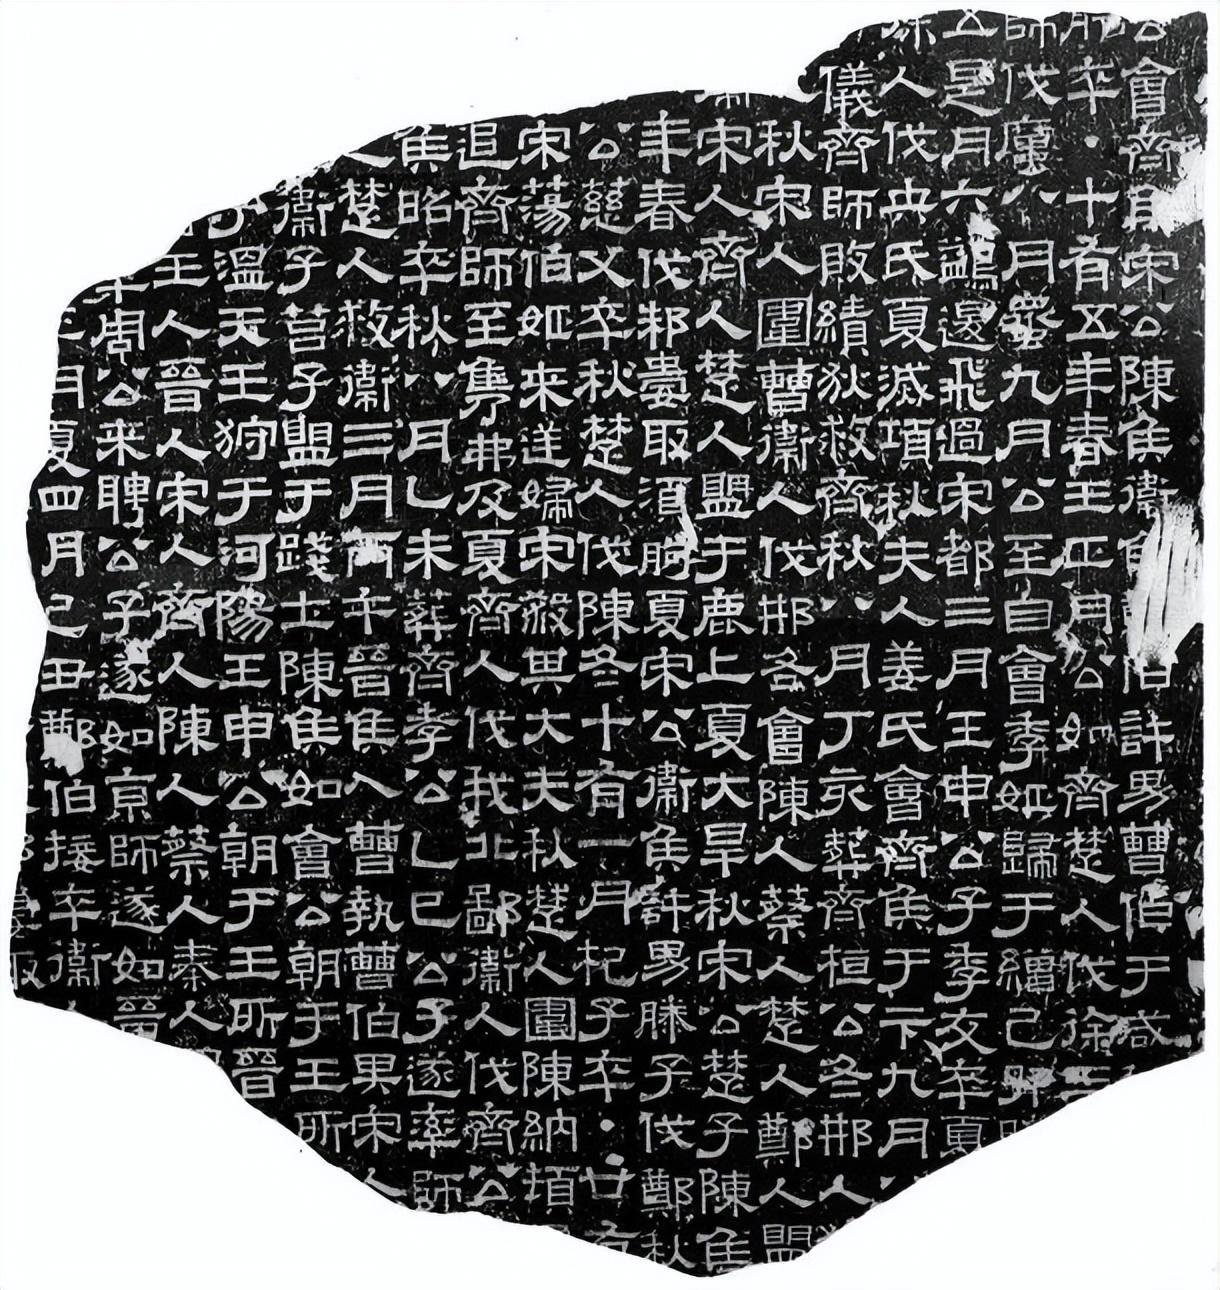 公會齊侯宋公陳侯衛侯鄭伯許男曹伯于咸
肸卒·十有五年春王正月公如齊楚人伐徐三
師伐厲八月螽九月公至自會季姬歸于繒己卯晦
五是月六鶂退飛過宋都三月壬申公子季友卒夏
徐人伐英氏夏滅項秋夫人姜氏會齊侯于卞九月
儀齊師敗績狄救齊秋八月丁亥葬齊桓公冬邢人
秋宋人圍曹衛人伐邢冬會陳人蔡人楚人鄭人盟
宋人齊人楚人盟于鹿上夏大旱秋宋公楚子陳侯
年春伐邾婁取須朐夏宋公衛侯許男滕子伐鄭秋
公慈父卒秋楚人伐陳冬十有一月杞子卒·廿有
宋蕩伯姬來逆婦宋殺其大夫秋楚人圍陳納頓
追齊師至巂弗及夏齊人伐我北鄙衛人伐齊公
侯昭卒秋八月乙未葬齊孝公乙巳公子遂率師
人楚人救衛三月丙午晉侯入曹執曹伯畀宋人
衛子莒子盟于踐土陳侯如會公朝于王所
于溫天王狩于河陽壬申公朝于王所晉
王人晉人宋人齊人陳人蔡人秦人
宰周公來聘公子遂如京師遂如晉
月夏四月己丑鄭伯接卒衛